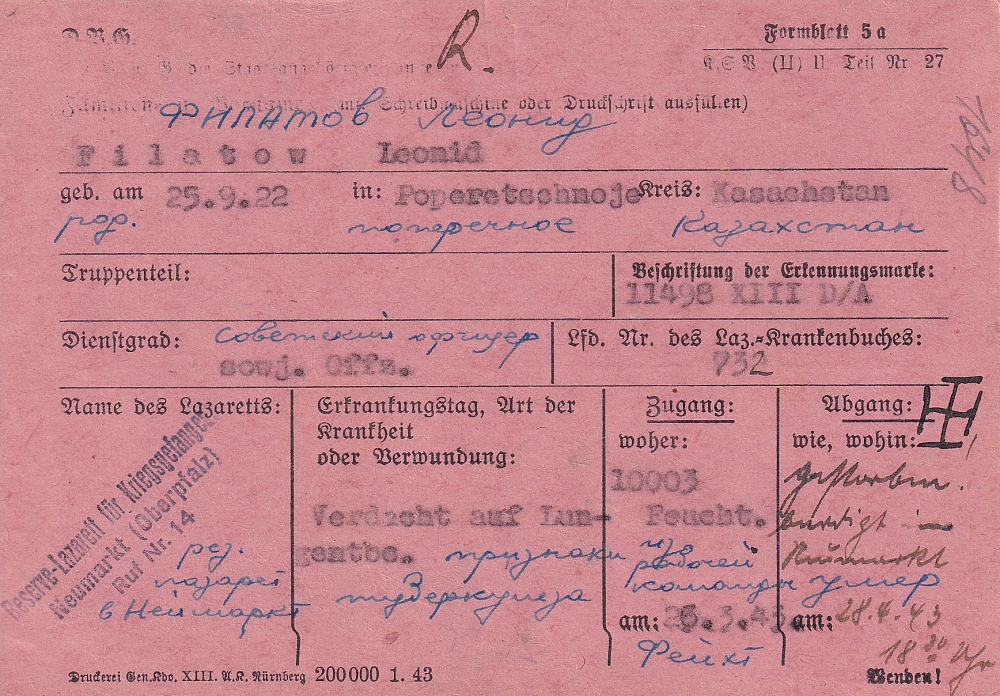 D.R.G.
R.
Formblatt 5a
K.S.V (II) 11 Teil Nr. 27
Schreibmaschine oder Druckschrift ausfüllen)
Филатов Леонид
Filatow Leonid
geb. am 25.9.22 in: Poperetschnoje Kreis: Kasachstan
род. поперечное Казахстан
Truppenteil:
Beschriftung der Erkennungsmarke:
11498 XIII D/A
Dienstgrad: советский офицер
sowj. Offz.
Lfd. Nr. des Laz.-Krankenbuches:
732
Name des Lazaretts:
Reserve-Lazarett für Kriegsgefangene
Neumarkt (Oberpfalz)
Ruf Nr. 14
рез.
лазарет
в Неймаркт
Erkrankungstag, Art der
Krankheit
oder Verwundung:
Verdacht auf Lun-
gentbc.
признаки
туберкулеза
Zugang:
woher:
10003
Feucht.
из
рабочей
команды
am: 25.3.43.
Фейхт
Abgang:
wie, wohin:
gestorben.
beerdigt in
Neumarkt
умер
am: 28.4.43
18 30 Uhr
Druckerei Gen.Kdo. XIII. A.K. Nürnberg 200000 1. 43
Wenden!